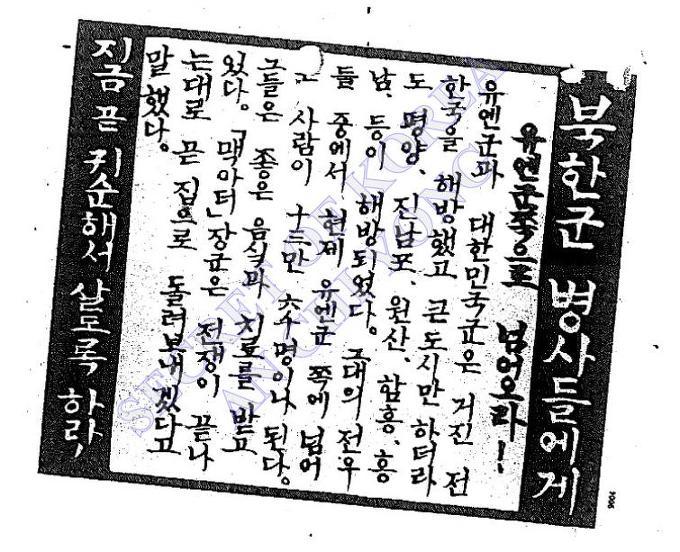 북한군 병사들에게
유엔군쪽으로 넘어오라!
유엔군과 대한민국군은 거진 전
한국을 해방했고 큰도시만 하더라
도 평양, 진남포, 원산, 함흥, 흥
남, 등이 해방되었다. 그대의 전우
들 중에서 현재 유엔군 쪽에 넘어
사람이 十三만 六千명이나 된다.
그들은 좋은 음식과 치료를 받고
있다. 「맥아더」장군은 전쟁이 끝나
는대로 곧 집으로 돌려보내겠다고
말했다.
지금 곧 귀순해서 살도록 하라.
SECRET OF KOREA
AN CHI YONG